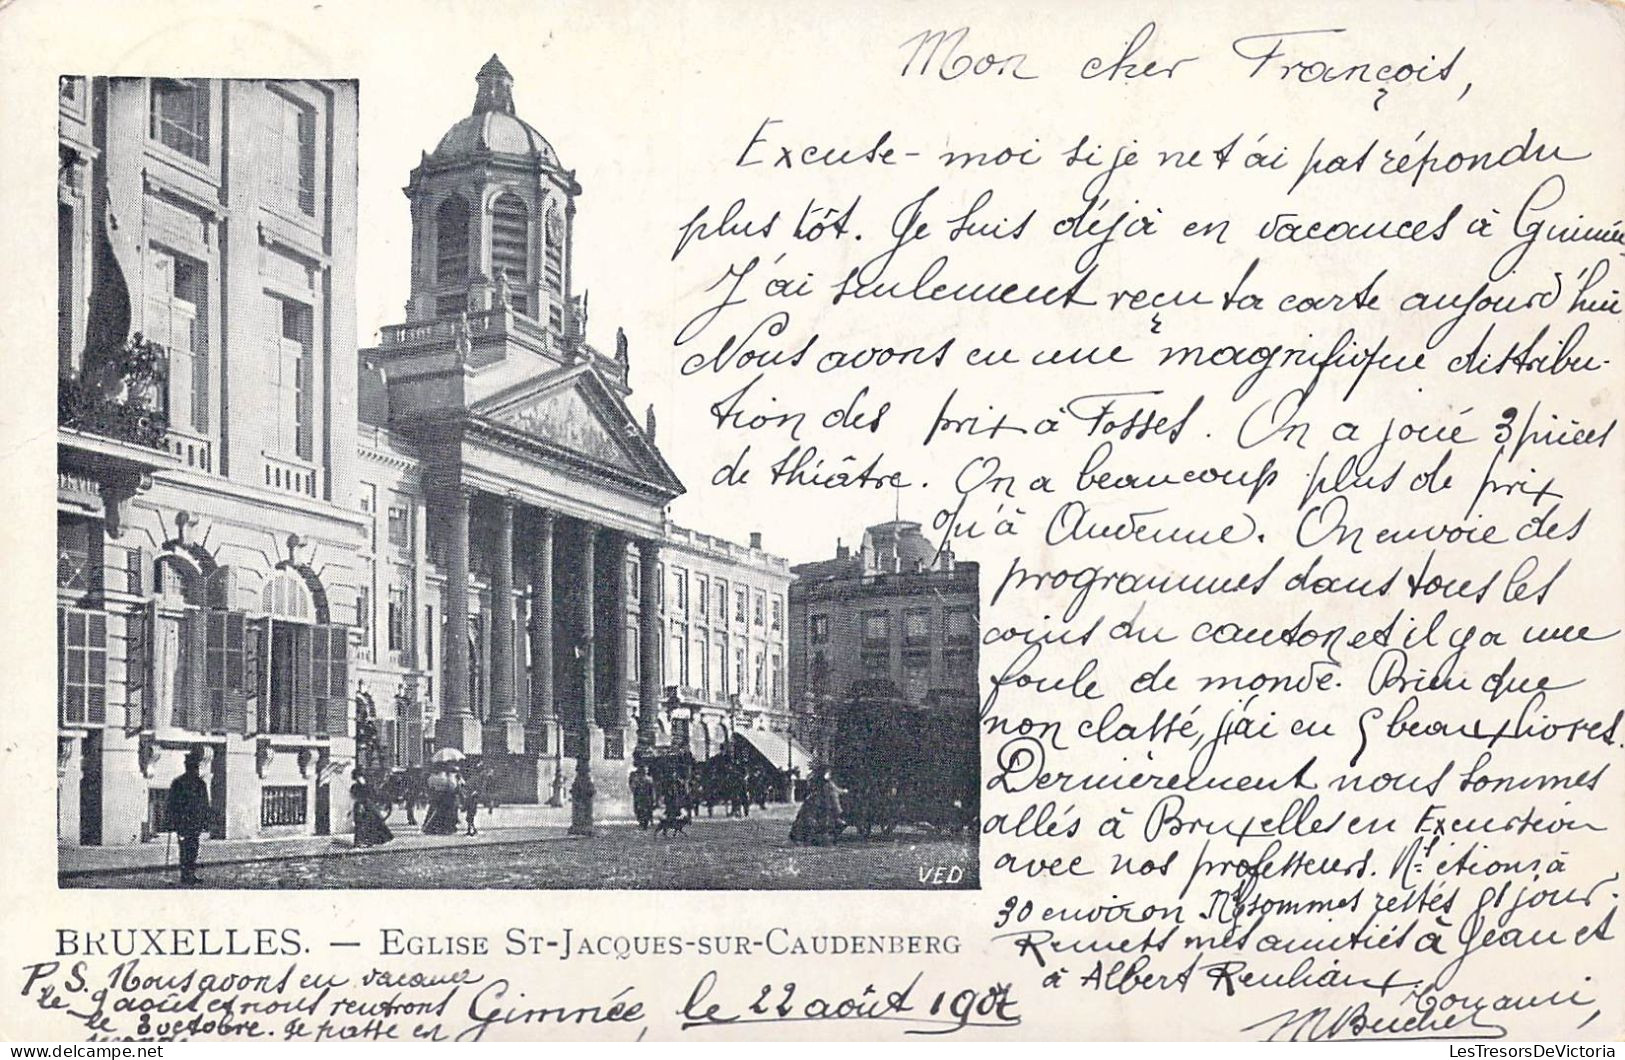 Mon cher François,
Excuse-moi si je ne t'ai pas répondu
plus tôt. Je suis déjà en vacances à Gimnée
J'ai seulement reçu ta carte aujourd'hui
Nous avons eu une magnifique distribu-
tion des prix à Fosses. On a joué 3 pièces
de théâtre. On a beaucoup plus de prix
qu'à Andenne. On envoie des
programmes dans tous les
coins du canton et il y a une
foule de monde. Bien que
non classé, j'ai eu 5 beaux livres.
Dernièrement nous sommes
allés à Bruxelles en Excursion
avec nos professeurs. Ns étions à
30 environ. Ns sommes restés jour.
Remets mes amitiés à Jean et
à Albert Reuliaux. Ton ami,
VED
BRUXELLES. — EGLISE ST-JACQUES-SUR-CAUDENBERG
P.S. Nous avons eu vacances
le 9 août et nous rentrons
le 3 octobre. Je passe en
seconde
Gimnée, le 22 août 190
LesTresorsDeVictoria